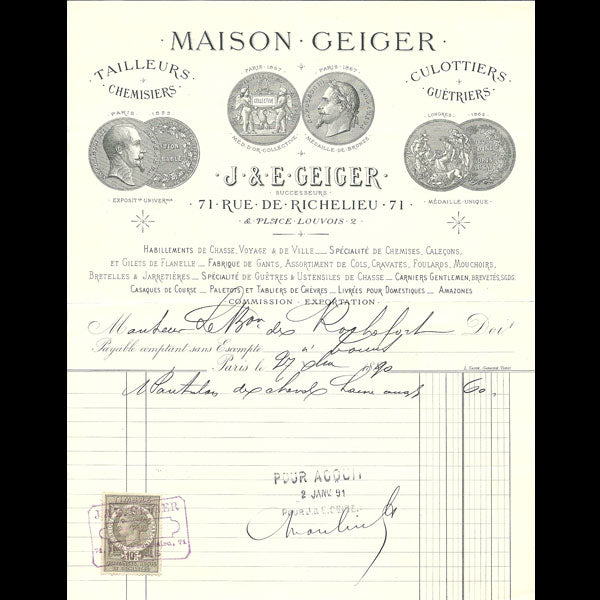 · MAISON · GEIGER ·
TAILLEURS
CHEMISIERS
CULOTTIERS
GUÊTRIERS
PARIS · 1867
PARIS · 1867
COLLECTIVE
MÉD. D'OR · COLLECTIVE
MÉDAILLE · DE · BRONZE
PARIS 1855
EXPOSIT^ON UNIVER^LLE
LONDRES 1862
MÉDAILLE · UNIQUE
· J · & · E · GEIGER ·
SUCCESSEURS
· 71 · RUE · DE · RICHELIEU · 71 ·
& · PLACE · LOUVOIS · 2 ·
HABILLEMENTS DE CHASSE, VOYAGE & DE VILLE __ SPÉCIALITÉ DE CHEMISES, CALEÇONS,
ET GILETS DE FLANELLE __ FABRIQUE DE GANTS, ASSORTIMENT DE COLS, CRAVATES, FOULARDS, MOUCHOIRS,
BRETELLES & JARRETIÈRES __ SPÉCIALITÉ DE GUÊTRES & USTENSILES DE CHASSE __ CARNIERS GENTLEMEN, BREVETÉS, SGDG.
CASAQUES DE COURSE __ PALETOTS ET TABLIERS DE CHÈVRES __ LIVRÉES POUR DOMESTIQUES __ AMAZONES
COMMISSION _ EXPORTATION
Monsieur Le Bon de Rochefort Doit
Payable comptant sans Escompte à Tours
Paris le 27 1890
1 Pantalon de cheval laine 60 "
POUR ACQUIT
2 JANV 91
POUR J & E GEIGER
TIMBRE
J. & E. GEIGER
71
10